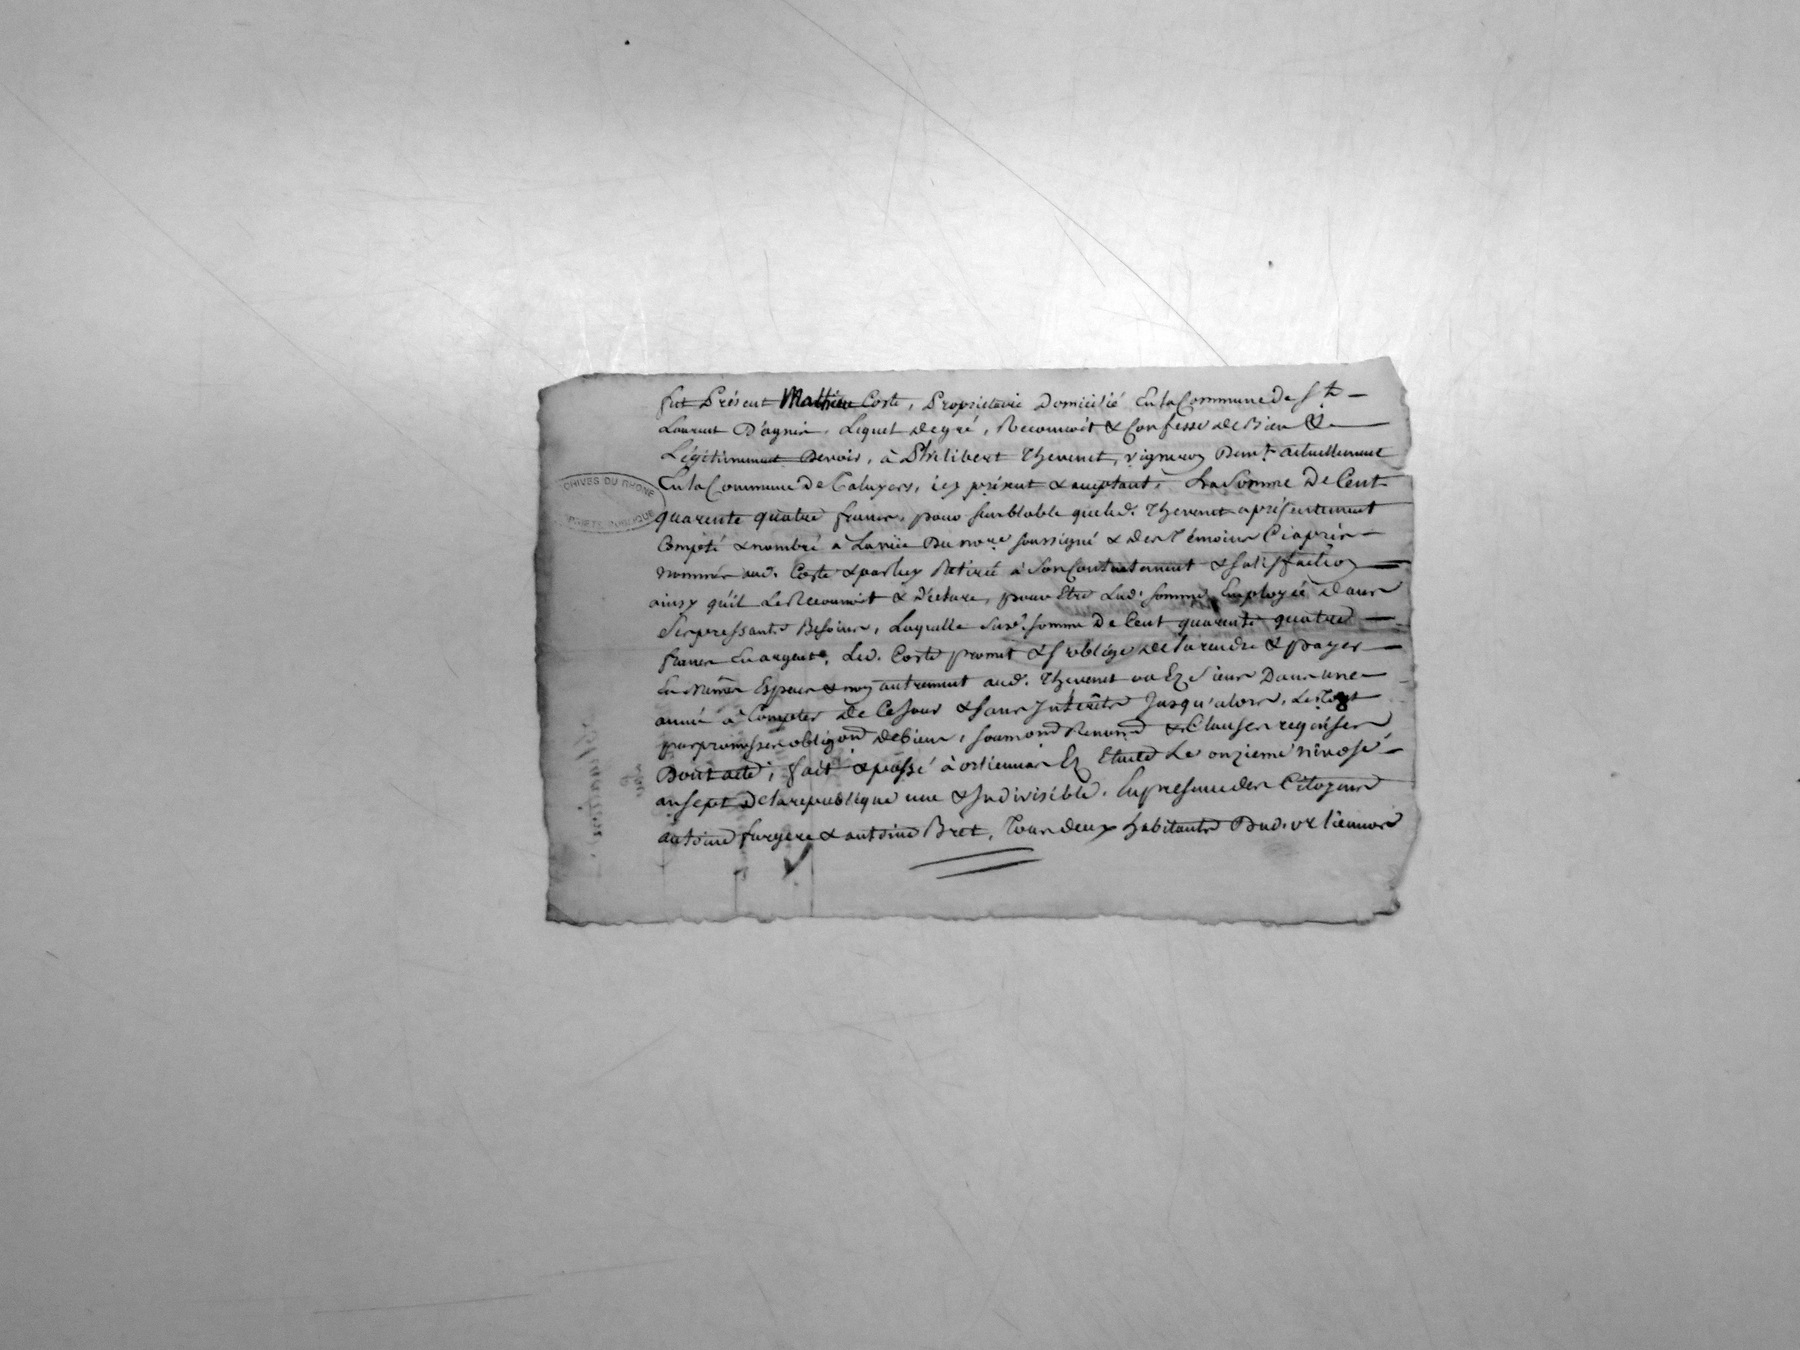 fut Présent Mathieu Coste, Propriétaire Domicilié En la Commune de St
Laurent D'agnin. Lequel de gré, Reconnoit & Confesse de Bien &
Légitimement Devoir, à Philibert Thevenet, vigneron Demt actuellement
En la Commune De Taluyers, icy présent & acceptant, La Somme De Cent
quarente quatre francs, pour semblable que led. Thevenet a présentement
Compté & nombré à La vüe Du nore soussigné & des Témoins Ciaprès
nommés aud. Coste & par luy Retiré à Son Contentement & satisfaction
ainsy qu'il Le Reconnoit & Déclare, pour Etre Lad. somme Employée Dans
Ses pressants Besoins, Laquelle susd. somme De Cent quarente quatre
francs En argent, Led. Coste promet & s'oblige de la rendre & payer
En Même Espece & non autrement aud. Thevenet ou Ez Siens Dans une
année à Compter De Ce Jour & sans Interêts Jusqu'alors, Le Tout
par promesses obligond de biens, soumond Renond & Clauses requises
Dont acte, fait & passé à orlienas Ez Etude Le onzieme nivose
an sept De la republique une & Indivisible. En presence des Citoyens
antoine furgere & antoine Bret, Tous deux habitants Dud. orlienas
CHIVES DU RHONE